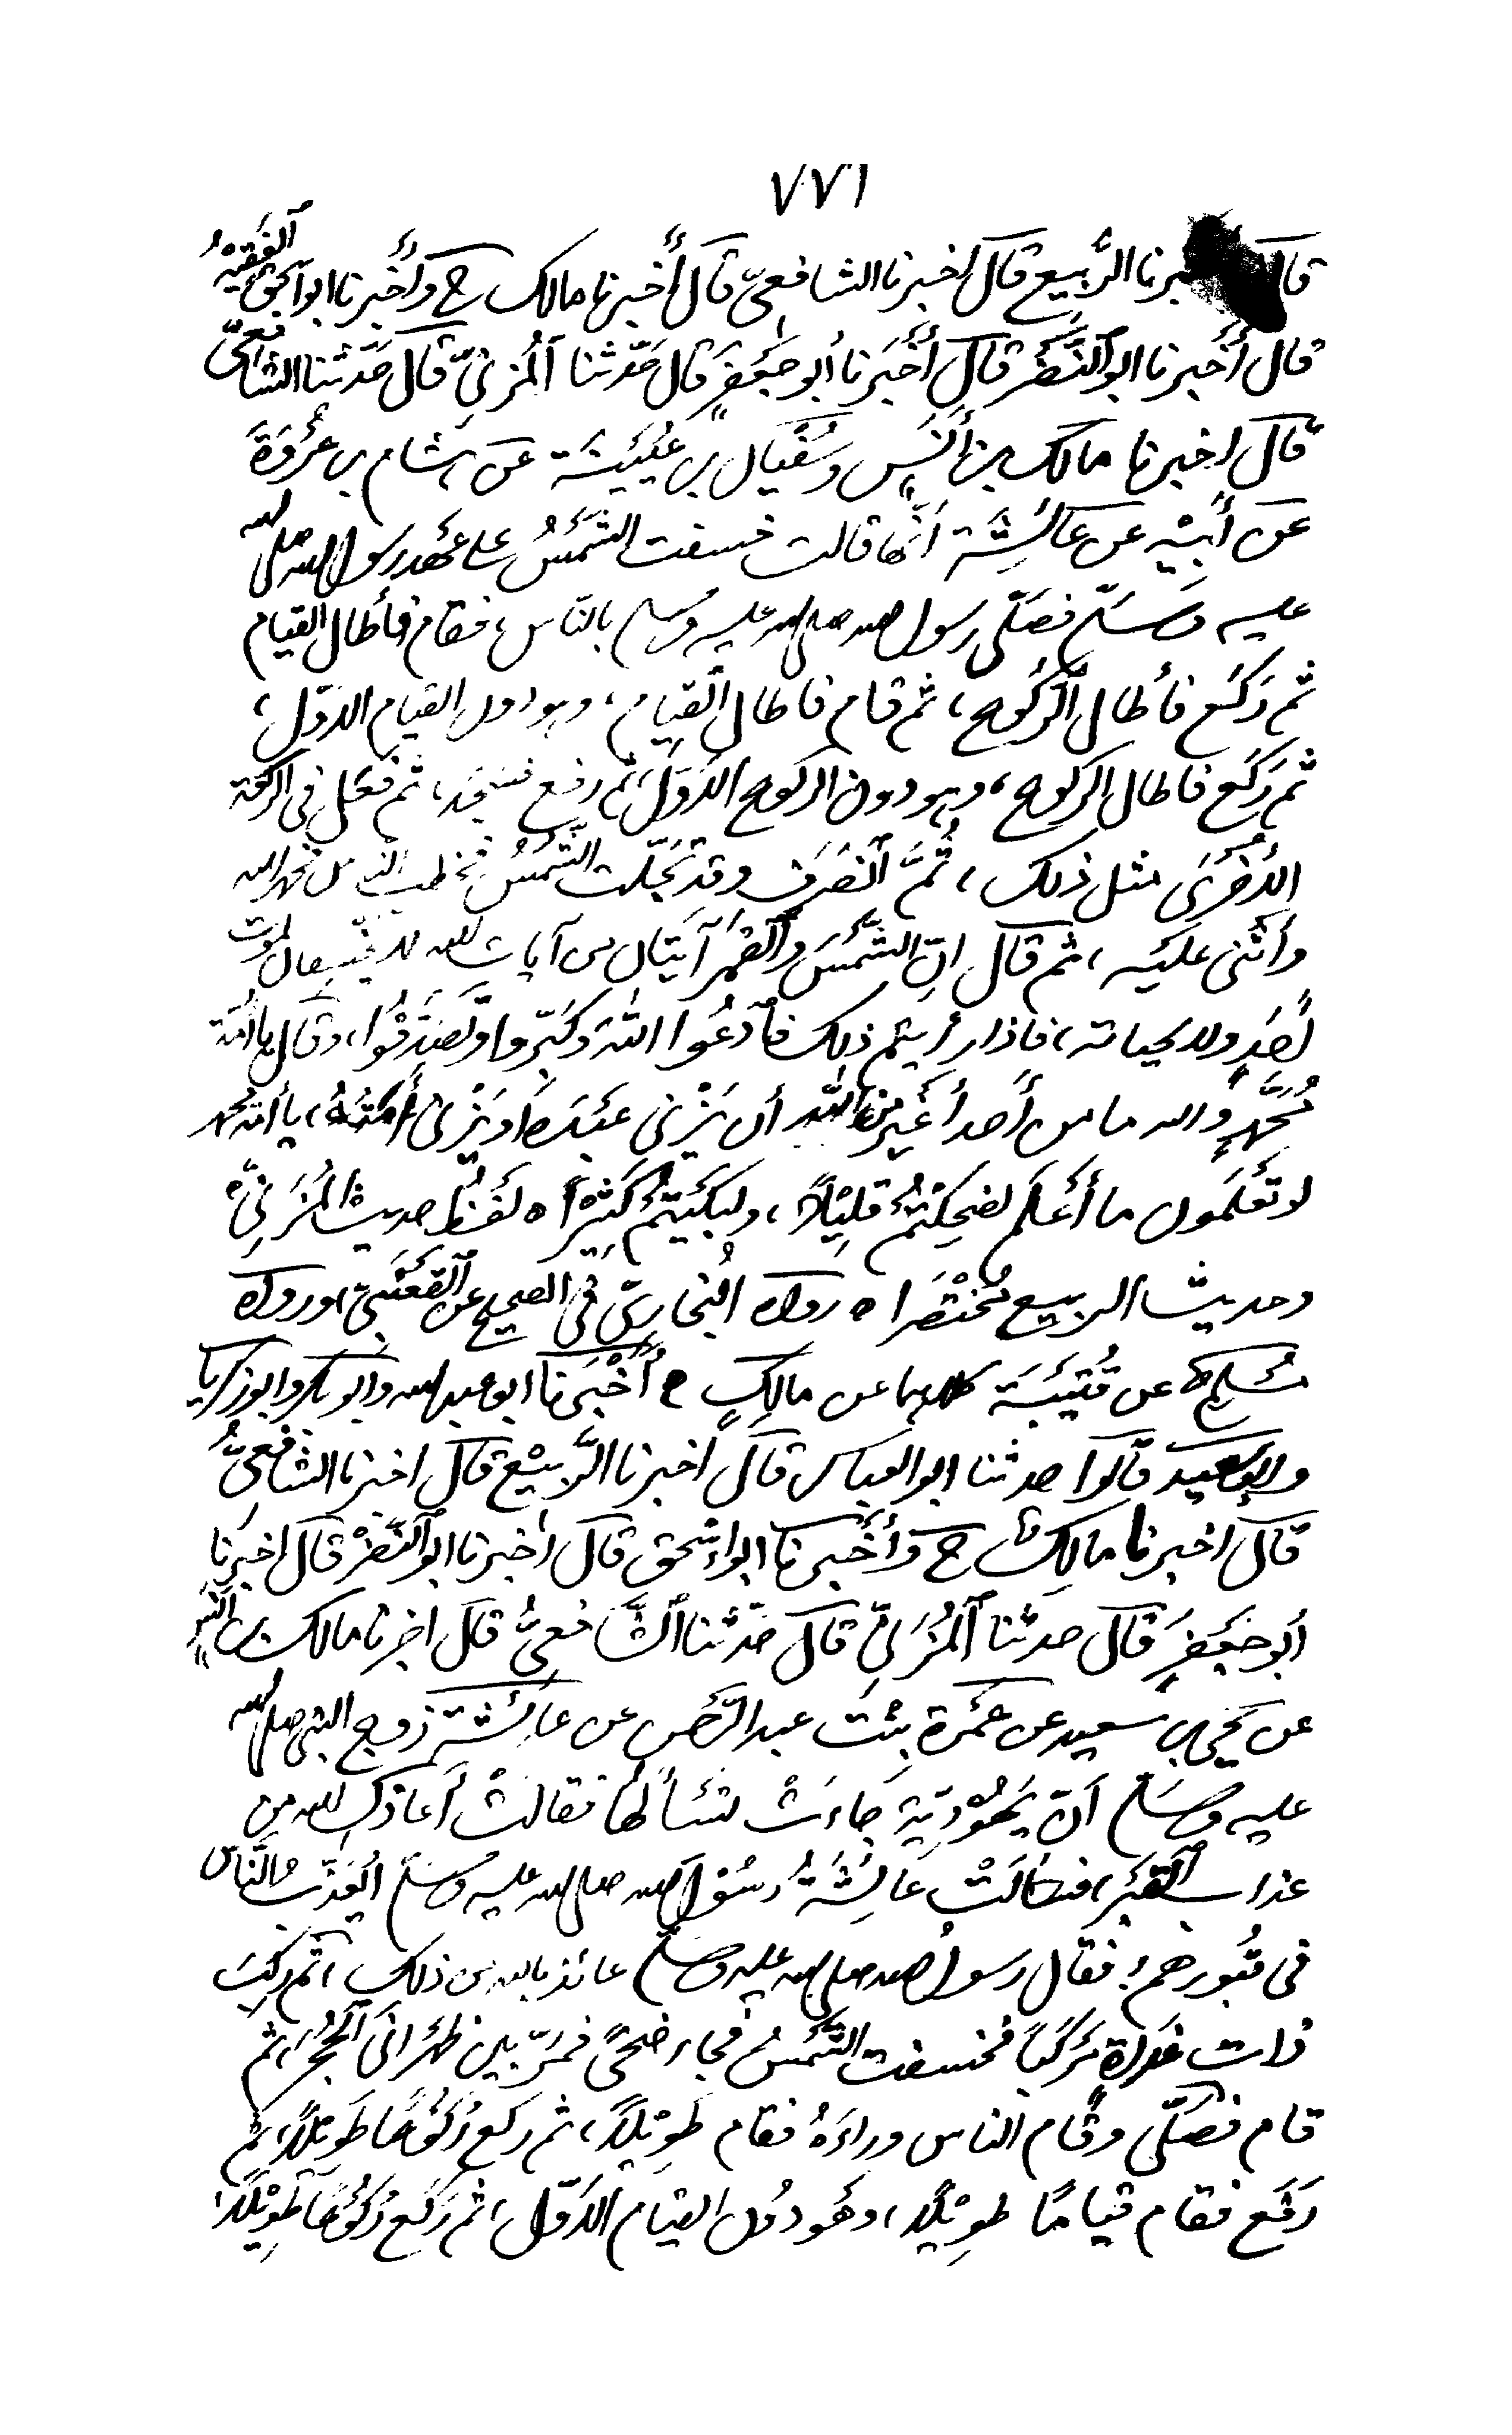 ٧٧٦
قال أخبرنا الرَّبيع قال اخبرنا الشافعيّ قال أُخبرنا مالك ح وأُخبرنا ابو اسحٰق الفقيهُ
قال أُخبرنا ابو النَّضْر قال أُخبَرنا أبو جَعْفرٍ قال حَدّثنا المُزَنيّ قال حدّثنا الشافعيّ
قال اخبرنا مالك بن أنَسٍ وسُفْيٰن بن عُيَيْنَة عن هشام بن عُروَةَ
عن أَبيْه عن عَائشَة انّها قالت خسفت الشّمْسُ على عَهْد رسول الله صلى الله
عليه وسَلّم فصَلّى رسول الله صلى الله عليه وسلم بالنّاس، فقام فأطال القيام
ثم رَكَع فأطال الرُّكُوع، ثم قام فاطال القيام، وهو دون القيام الاوّل،
ثم رَكَع فاطال الركوع، وهو دون الركوع الاوّل، ثم رفع فسَجَد، ثم فعَل فى الركعة
الاُخْرىٰ مثل ذلك، ثُمَّ انصَرَف وقد تَجَلّت الشّمْسُ فخطب النّاس فحمد الله
وأَثْنى عليه، ثم قال انّ الشَّمْسَ والقَمَر آيتان من آيات الله لا يخسفان لموت
أَحَدٍ ولا لحياته، فاذا رأيتم ذلك فادعُوا اللهَ وكبّروا وتَصَدّقُوا، وقال يا أُمّة
مُحَمَّدٍ والله ما من أَحد أَغْيَر من الله أن يَزْنى عَبْدُه أو تَزْنى أَمَتُهُ، يا أمّة محمد
لو تعْلَمُون ما أَعْلَم لضحكْتُمْ قليْلاً، ولبكَيْتُمْ كثيْراً ه لفْظُ حديث المُزَنيِّ ه
وحديث الربيع مُخْتَصَر ه رواه البُخاريّ فى الصحيح عن القَعْنَبيّ، ورواه
مُسْلم عن قُتَيْبَة كلاهما عن مالكٍ ه أُخْبَرنا ابو عبد الله وابو بكر وابو زكريا
وابو سعيد قالوا حدثنا ابو العباس قال اخبرنا الرَّبيْع قال اخبرنا الشافعيُّ
قال اخبرنا مالك ح وأُخبرنا ابو اسحٰق قال أخبرنا ابو النَّضْر قال اخبرنا
أبو جَعْفرٍ قال حدثنا المُزَنيّ قال حدّثنا الشَّافعيُّ قال اخبرنا مالك بن أنسٍ
عن يحيى بن سعيد عن عَمْرة بنْت عبد الرّحمن عن عَائشة زوج النبى صلى الله
عليه وسلم أَنّ يَهُوْديّة جاءَتْ تسْأَلها فقالتْ أعاذك الله من
عذاب القَبْر، فسَألَتْ عَائشَةُ رسُوْل الله صلى الله عليه وسلم أيُعَذَّب النَّاس
فى قُبُورهم؟ فقال رسول الله صلى الله عليه وسلم عائذ بالله من ذلك، ثم ركبَ
ذات غداة مَرْكباً فخسفت الشّمْسُ فجاء ضحىً فمَرّ بين ظَهْراني الحُجَر، ثم
قام فصَلّى وقام الناس وراءَهُ فقام طَويْلاً، ثم ركع رُكُوْعاً طويلاً، ثم
رَفَع فقام قيَاماً طويْلاً، وهُو دُون القيام الاوّل، ثم رَكَع رُكُوْعاً طويْلاً،